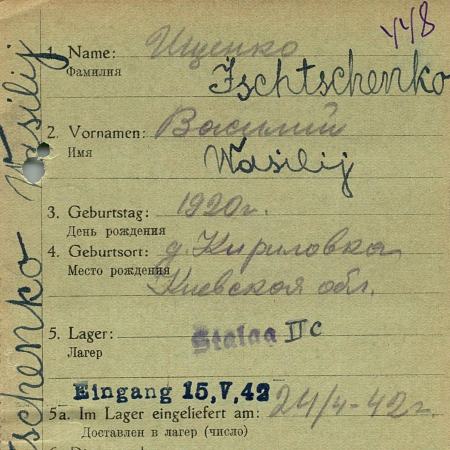 448
1. Name: Ищенко
Фамилия
Ischtschenko
2. Vornamen: Василий
Имя
Wasilij
3. Geburtstag: 1920 г.
День рождения
4. Geburtsort: д. Кириловка
Место рождения Киевская обл.
5. Lager: Stalag IIC
Лагер
Eingang 15,V,42
5a. Im Lager eingeliefert am: 24/4-42 г.
Доставлен в лагер (число)
schenko Wasilij